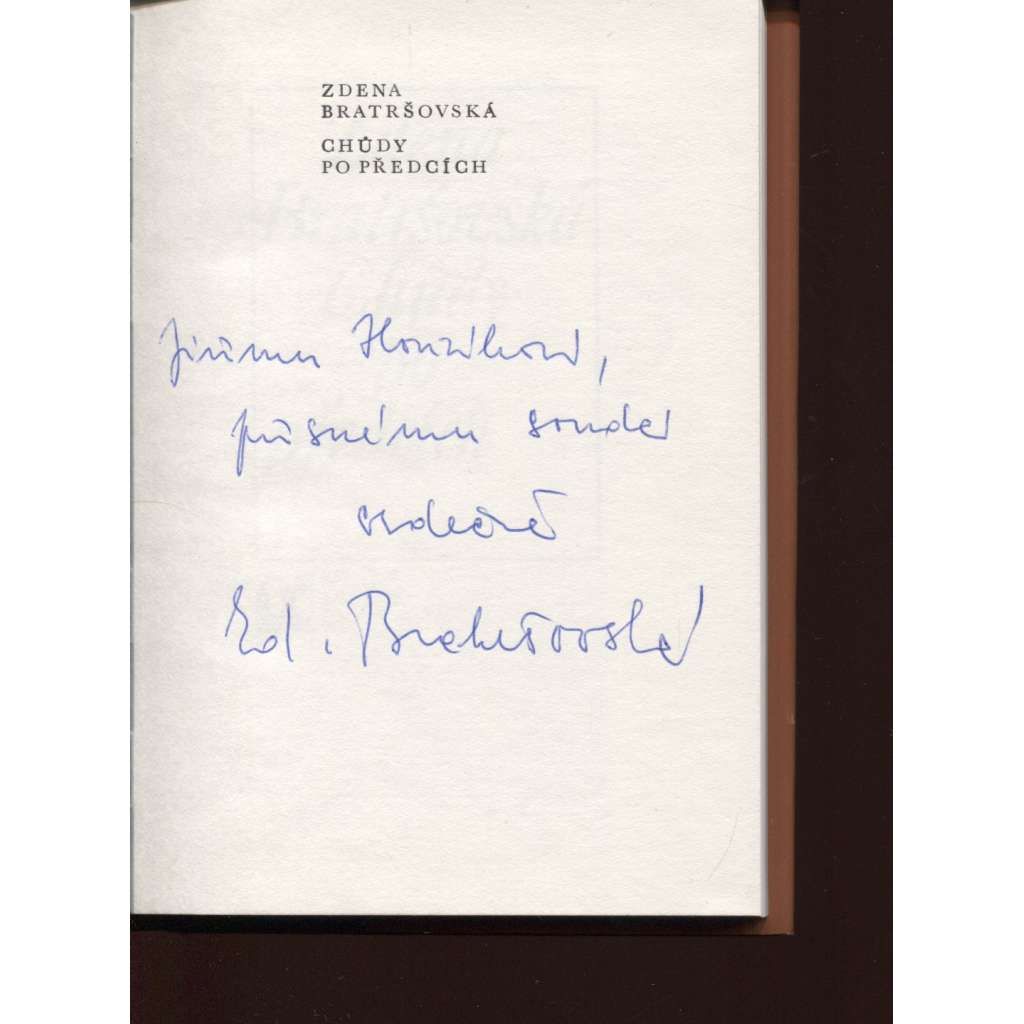 ZDENA
BRATRŠOVSKÁ
CHŮDY
PO PŘEDCÍCH
Jiřímu Honzíkovi,
přísnému soudci
srdečně
Zd. Bratršovská